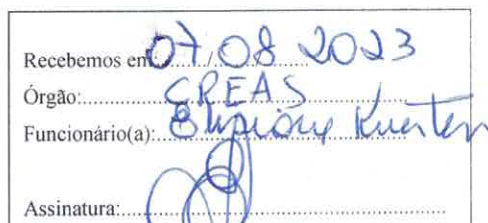 Recebemos em: 07/08 2023
Órgão: CREAS
Funcionário(a): Kuerten
Assinatura: